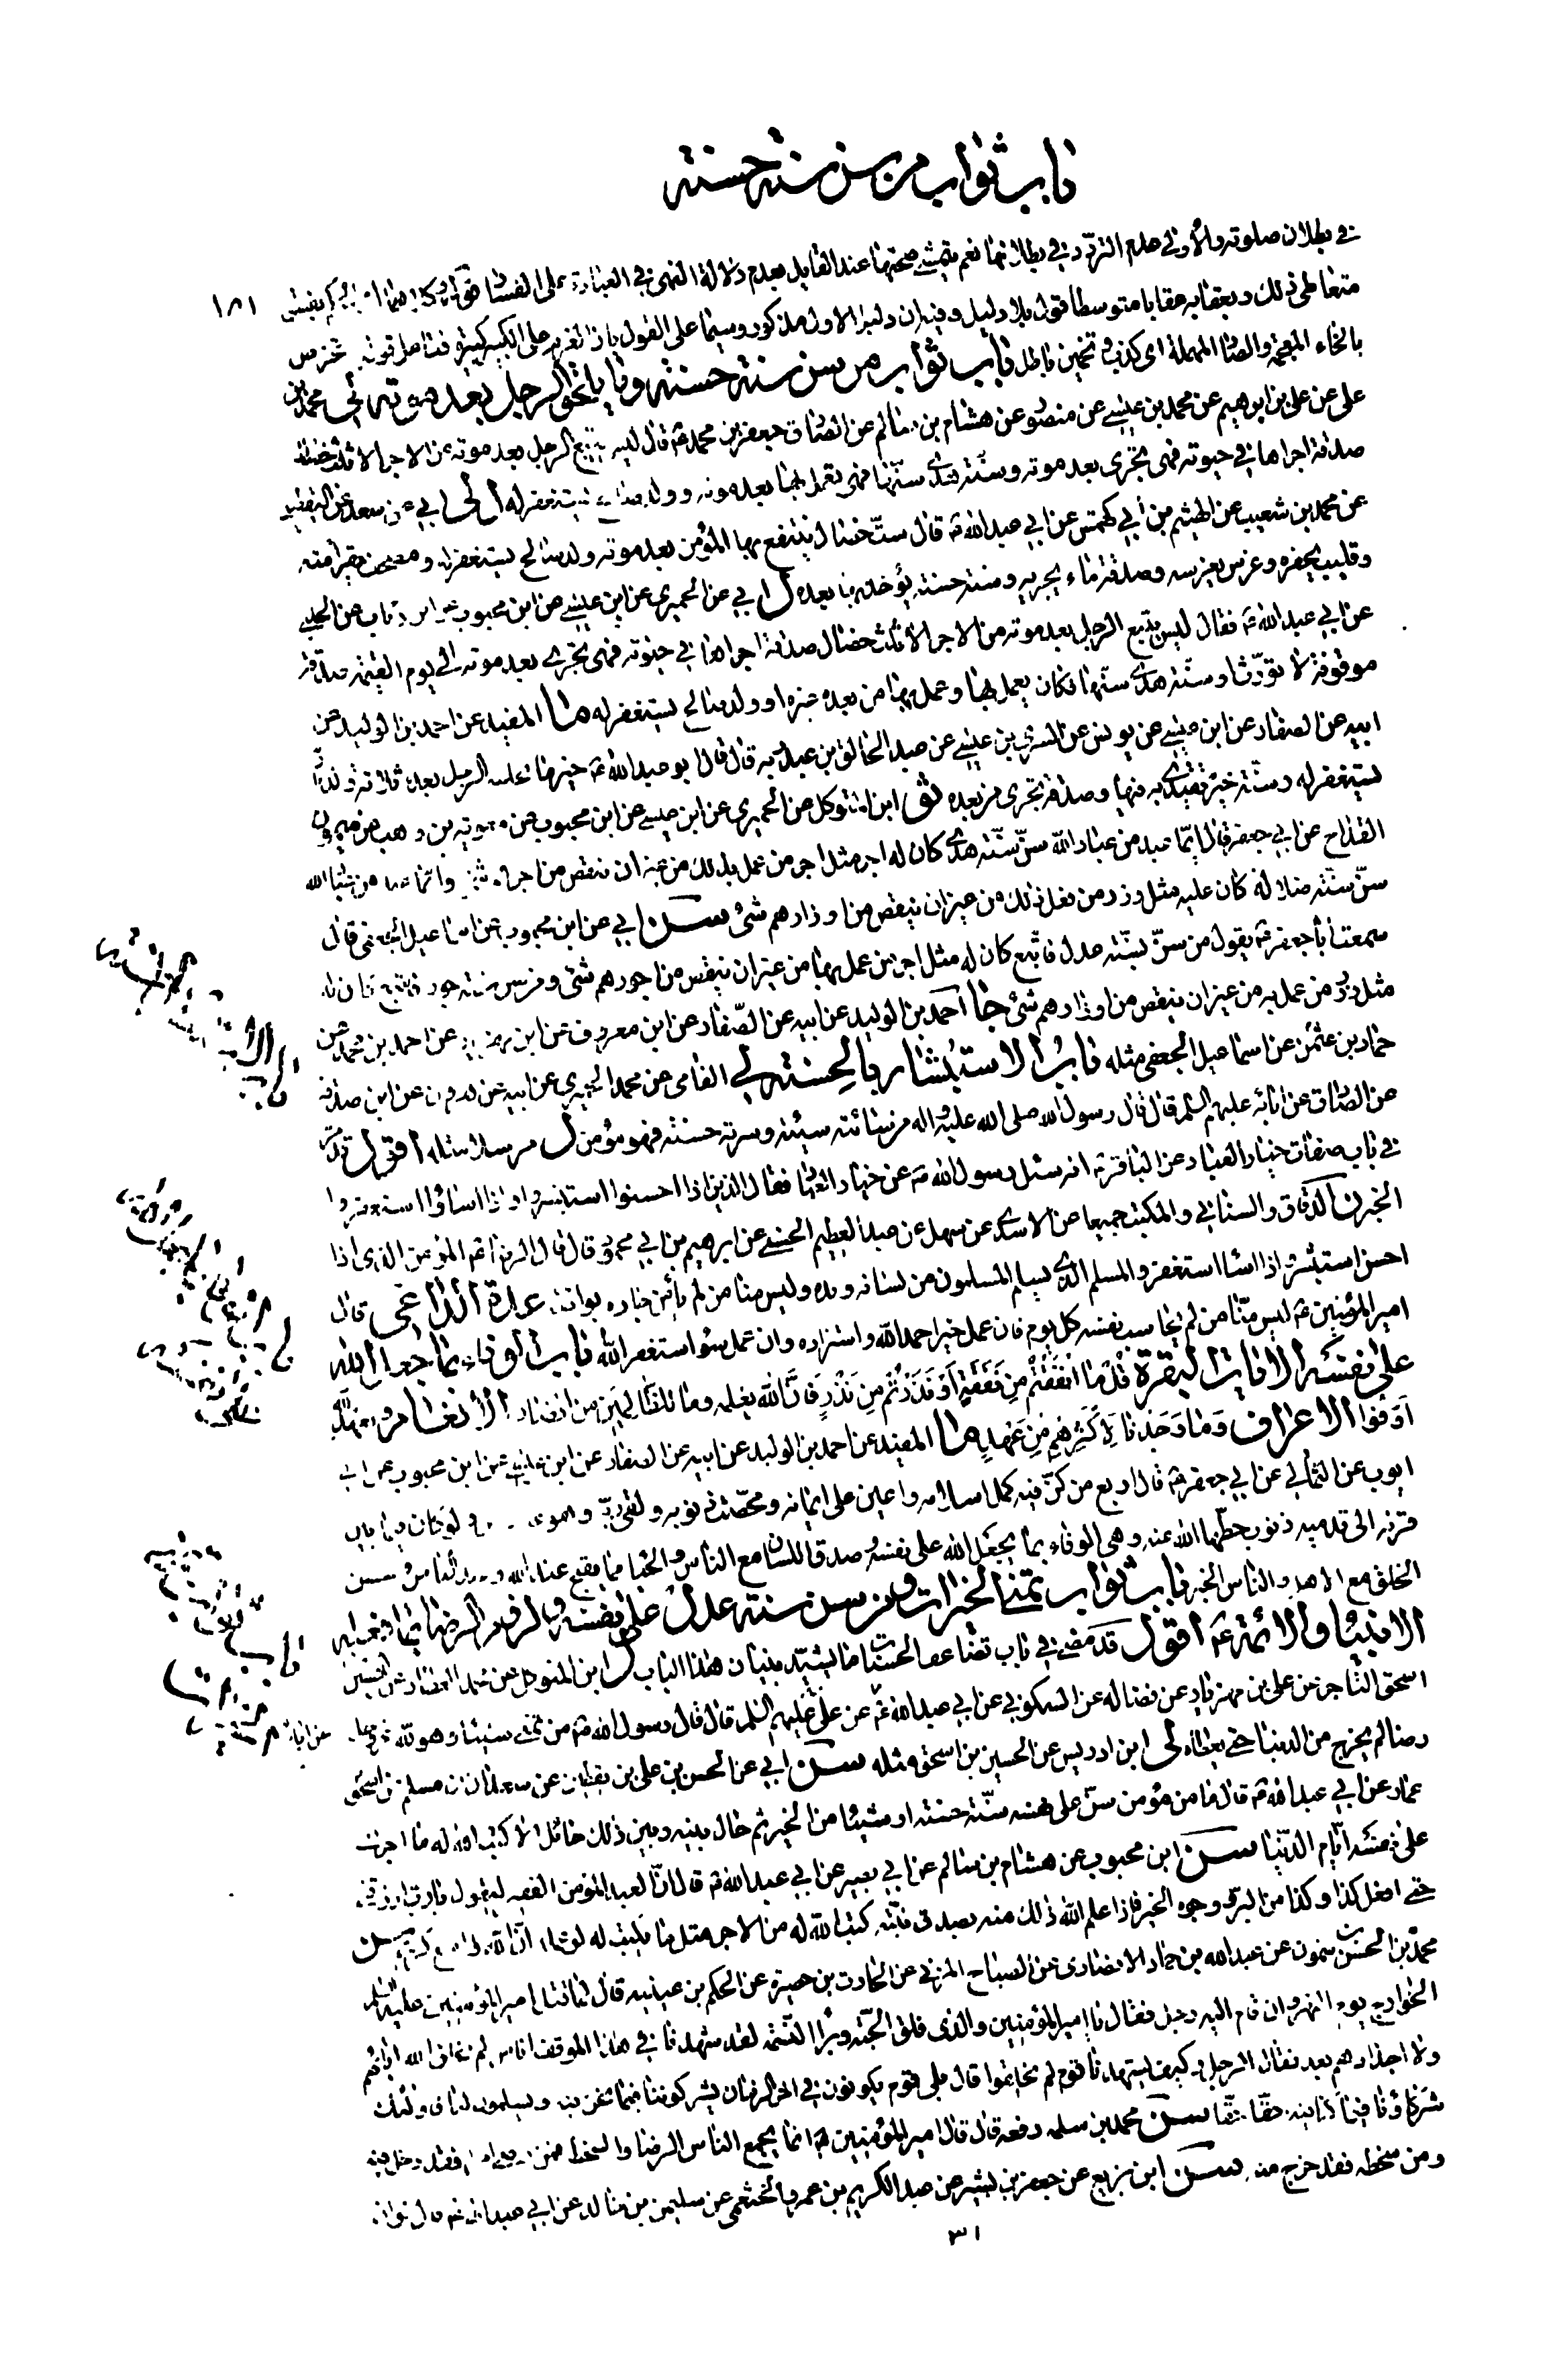 باب ثواب من سن سنة حسنة
في بطلان صلوته والأولى عدم التردد في بطلانها نعم يتمشى صحتها عند القايل بعدم دلالة النهى في العبادة على الفساد
١٨١
متعاطى ذلك ويعقابه عقابا متوسطا قول بلا دليل وفيه ان دليل الاول مذكور وسيما على القول بان
بالخاء المعجمة والصاد المهملة اى كذب وتخمين باطل باب ثواب من سن سنة حسنة وما يلحق الرجل بعد موته لى محمد بن
على عن على بن ابرهيم عن محمد بن عيسى عن منصور عن هشام بن سالم عن الصادق جعفر بن محمد ع قال ليس يتبع الرجل بعد موته من الاجر الا ثلث خصال
صدقة اجراها في حيوته فهى تجرى بعد موته وسنة هدى سنها فهى يعمل بها بعد موته وولد صالح يستغفر له لى ابي عن سعد عن اليقطينى
عن محمد بن شعيب عن الهيثم بن أبي كهمس عن ابي عبد الله ع قال ست خصال ينتفع بها المؤمن بعد موته ولد صالح يستغفر له ومصحف يقرأ منه
وقليب يحفره وغرس يغرسه وصدقة ماء يجريه وسنة حسنة يؤخذ بها بعده ل ابي عن الحميري عن ابن عيسى عن ابن محبوب عن ابن رئاب عن الحلبي
عن ابي عبد الله ع فقال ليس يتبع الرجل بعد موته من الاجر الا ثلث خصال صدقة اجراها في حيوته فهى تجرى بعد موته الى يوم القيمة صدقة
موقوفة لا تورث او سنة هدى سنها فكان يعمل بها وعمل بها من بعده غيره او ولد صالح يستغفر له ما المفيد عن احمد بن الوليد عن
ابيه عن الصفار عن ابن عيسى عن يونس عن السرى بن عيسى عن عبد الخالق بن عبد ربه قال قال ابو عبد الله ع خير ما يخلفه الرجل بعده ثلاثة ولد بار
يستغفر له وسنة خير يقتدى به فيها وصدقة تجرى من بعده ثو ابن المتوكل عن الحميرى عن ابن عيسى عن ابن محبوب عن معوية بن وهب عن ميمون
القداح عن ابي جعفر قال ايما عبد من عباد الله سن سنة هدى كان له اجر مثل اجر من عمل بذلك من غير ان ينقص من اجرهم شئ وايما عبد من عباد الله
سن سنة ضلالة كان عليه مثل وزر من فعل ذلك من غير ان ينقص من اوزارهم شئ سن ابي عن ابن محبوب عن اسماعيل الجعفى قال
سمعت اباجعفر ع يقول من سن سنة عدل فاتبع كان له مثل اجر من عمل بها من غير ان ينقص من اجورهم شئ ومن سن سنة جور فاتبع كان له
مثل وزر من عمل به من غير ان ينقص من اوزارهم شئ جا احمد بن الوليد عن ابيه عن الصفار عن ابن معروف عن ابن مهزيار عن احمد بن محمد عن
حماد بن عثمن عن اسماعيل الجعفى مثله باب الاستبشار بالحسنة لى الفامى عن محمد الحميرى عن ابيه عن هرون عن ابن صدقة
عن الصادق عن ابائه عليهم السلم قال قال رسول الله صلى الله عليه واله من ساءته سيئة وسرته حسنة فهو مؤمن ل مرسلا مثله اقول قد مر
في باب صفات خيار العباد عن الباقر ع انه سئل رسول الله ص عن خيار العباد فقال الذين اذا احسنوا استبشروا واذا اساؤا استغفروا
الخبر ن الدقاق والسناني والمكتب جميعا عن الاسدى عن سهل عن عبد العظيم الحسنى عن ابرهيم بن ابي محمود قال قال الرضا ع المؤمن الذى اذا
احسن استبشر واذا اساء استغفر والمسلم الذى يسلم المسلمون من لسانه ويده وليس منا من لم يأمن جاره بوائقه عدة الداعى قال
امير المؤمنين ع ليس منا من لم يحاسب نفسه كل يوم فان عمل خيرا حمد الله واستزاده وان عمل سوء استغفر الله باب الوفاء بما جعل لله
على نفسه الايات البقرة قل ما انفقتم من نفقة او نذرتم من نذر فان الله يعلمه وما للظالمين من انصار الانعام وبعهد الله
اوفوا الاعراف وما وجدنا لاكثرهم من عهد ما المفيد عن احمد بن الوليد عن ابيه عن الصفار عن ابن عيسى عن ابن محبوب عن ابي
ايوب عن الثمالي عن ابي جعفر ع قال اربع من كن فيه كمل اسلامه واعين على ايمانه ومحصت ذنوبه ولقى ربه وهو ولو كان فيما بين
قرنه الى قدميه ذنوب حطها الله عنه وهى الوفاء بما يجعل الله على نفسه وصدق اللسان مع الناس والحياء مما يقبح عند الله وعند الناس وحسن
الخلق مع الاهل والناس الخبر باب ثواب تمنى الخيرات ومن سن سنة عدل على نفسه ولزوم الرضا بما فعله
الانبياء والائمة ع اقول قد مضى في باب تضاعف الحسنات ما يشيد بنيان هذا الباب ل ابن المتوكل عن محمد العطار عن الحسين
اسحق التاجر عن على بن مهزيار عن فضالة عن السكونى عن ابي عبد الله ع عن على عليهم السلم قال قال رسول الله ص من تمنى شيئا وهو لله عز وجل
رضا لم يخرج من الدنيا حتى يعطاه لى ابن ادريس عن الحسين بن اسحق مثله سن ابي عن الحسن بن على بن يقطين عن سعدان بن مسلم عن اسحق
عمار عن ابي عبد الله ع قال ما من مؤمن سن على نفسه سنة حسنة او شيئا من الخير ثم حال بينه وبين ذلك حائل الا كتب الله له ما اجرى
على نفسه ايام الدنيا سن ابن محبوب عن هشام بن سالم عن ابي بصير عن ابي عبد الله ع قال ان العبد المؤمن الفقير ليقول يا رب ارزقنى
حتى افعل كذا وكذا من البر ووجوه الخير فاذا علم الله ذلك منه بصدق نيته كتب الله له من الاجر مثل ما يكتب له لو عمله ان الله واسع كريم سن
محمد بن الحسن بن شمون عن عبد الله بن حماد الانصارى عن الصباح المزنى عن الحارث بن حصيرة عن الحكم بن عيينه قال لما قتل امير المؤمنين عليه السلم
الخوارج يوم النهروان قام اليه رجل فقال يا امير المؤمنين والذى فلق الحبة وبرأ النسمة لقد شهدنا في هذا الموقف اناس لم يخلق الله اباءهم
ولا اجدادهم بعد فقال الرجل وكيف يشهدنا قوم لم يخلقوا قال بلى قوم يكونون في اخر الزمان يشركوننا فيما نحن فيه ويسلمون لنا فاولئك
شركاؤنا فيما كنا فيه حقا حقا سن محمد بن سلمة رفعه قال قال امير المؤمنين ع انما يجمع الناس الرضا والسخط فمن رضى امرا فقد دخل فيه
ومن سخطه فقد خرج منه سن ابن بزيع عن جعفر بن بشير عن عبد الكريم بن عمرو الخثعمى عن سليمن بن خالد عن ابي عبد الله ع قال
٣١